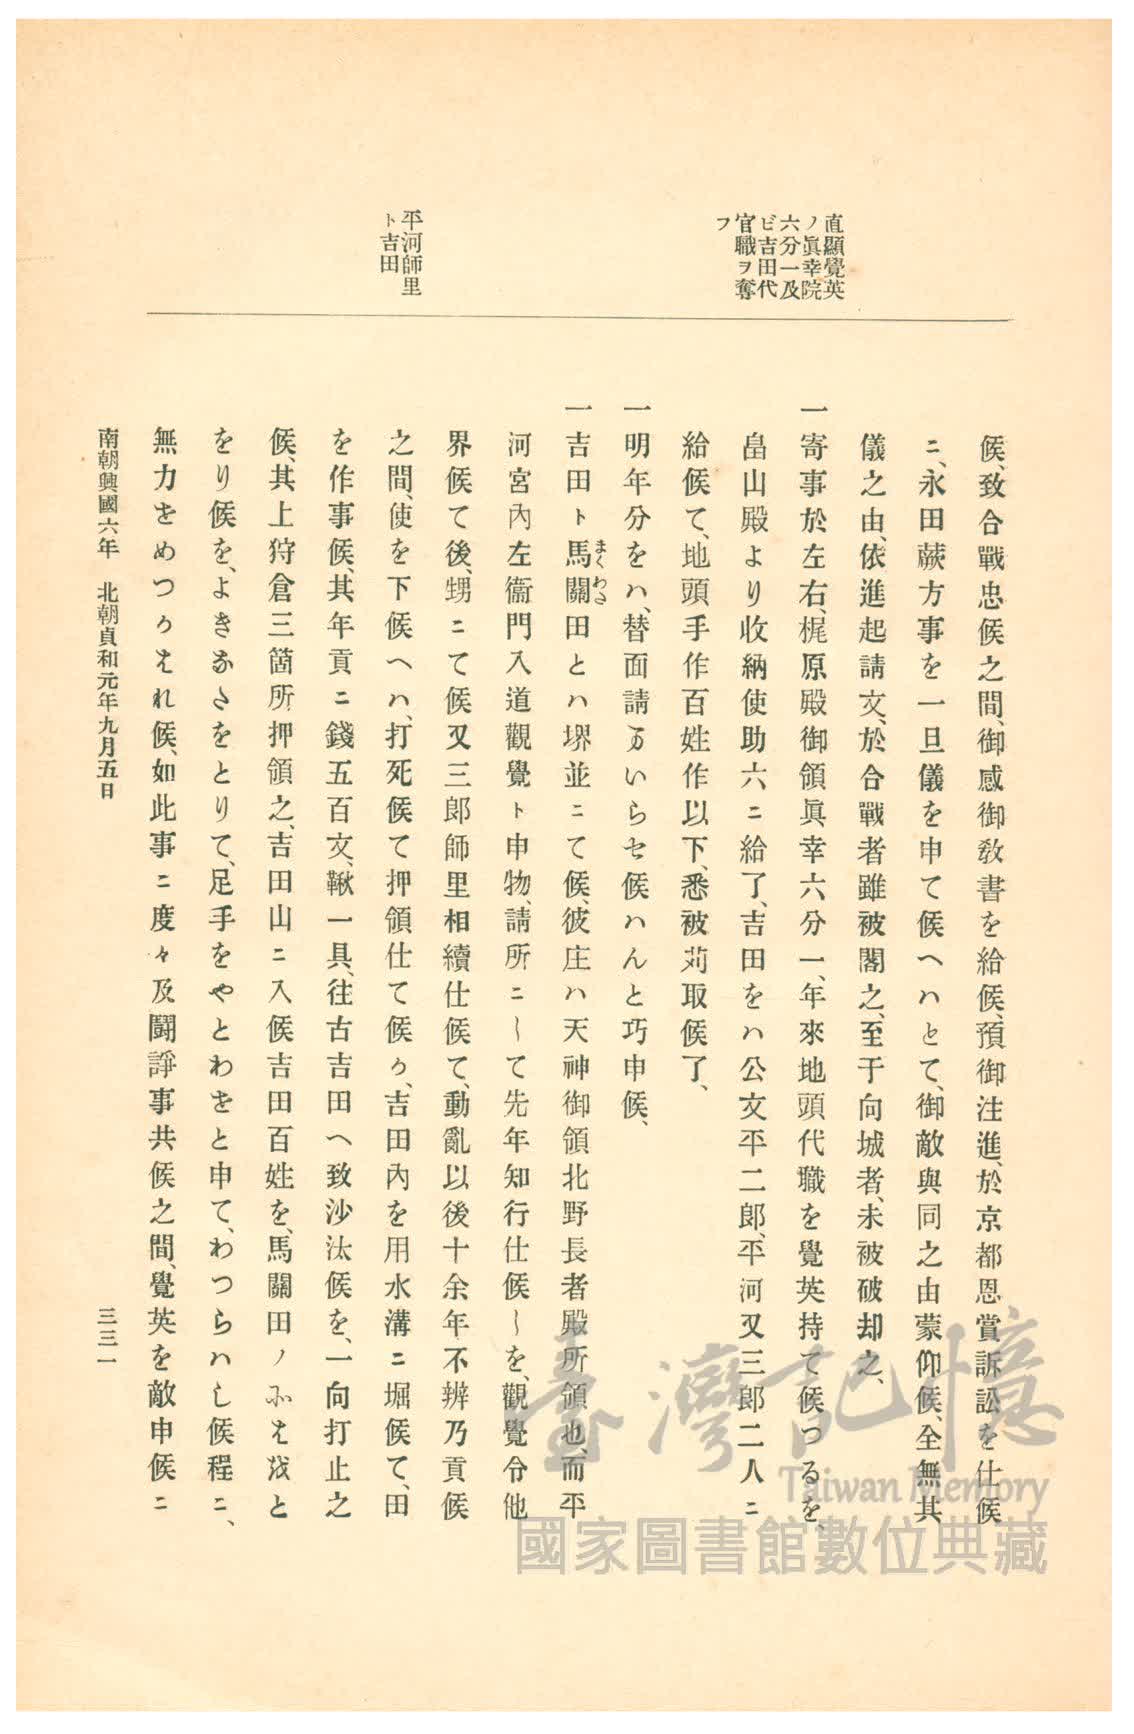 直顯覺英
ノ眞幸院
六分一及
ビ吉田代
官職ヲ奪
フ
平河師里
ト吉田
候、致合戰忠候之間、御感御敎書を給候、預御注進、於京都恩賞訴訟を仕候
ニ、永田蕨方事を一旦儀を申て候へハとて、御敵與同之由蒙仰候、全無其
儀之由、依進起請文、於合戰者雖被閣之、至于向城者、未被破却之、
一寄事於左右、梶原殿御領眞幸六分一、年來地頭代職を覺英持て候つるを、
畠山殿より收納使助六ニ給了、吉田をハ公文平二郎、平河又三郎二人ニ
給候て、地頭手作百姓作以下、悉被苅取候了、
一明年分をハ、替面請るいらセ候ハんと巧申候、
一吉田ト馬關田とハ堺並ニて候、彼庄ハ天神御領北野長者殿所領也、而平
まくわさ
河宮內左衞門入道觀覺ト申物、請所ニして先年知行仕候しを、觀覺令他
界候て後、甥ニて候又三郎師里相續仕候て、動亂以後十余年不辨乃貢候
之間、使を下候へハ、打死候て押領仕て候か、吉田內を用水溝ニ堀候て、田
を作事候、其年貢ニ錢五百文、鞦一具、往古吉田へ致沙汰候を、一向打止之
候、其上狩倉三箇所押領之、吉田山ニ入候吉田百姓を、馬關田ノおとなと
をり候を、よきなたをとりて、足手をやとわをと申て、わつらハし候程ニ、
無力をめつかはれ候、如此事ニ度々及鬪諍事共候之間、覺英を敵申候ニ
南朝興國六年　北朝貞和元年九月五日
三三一
臺灣記憶
Taiwan Memory
國家圖書館數位典藏